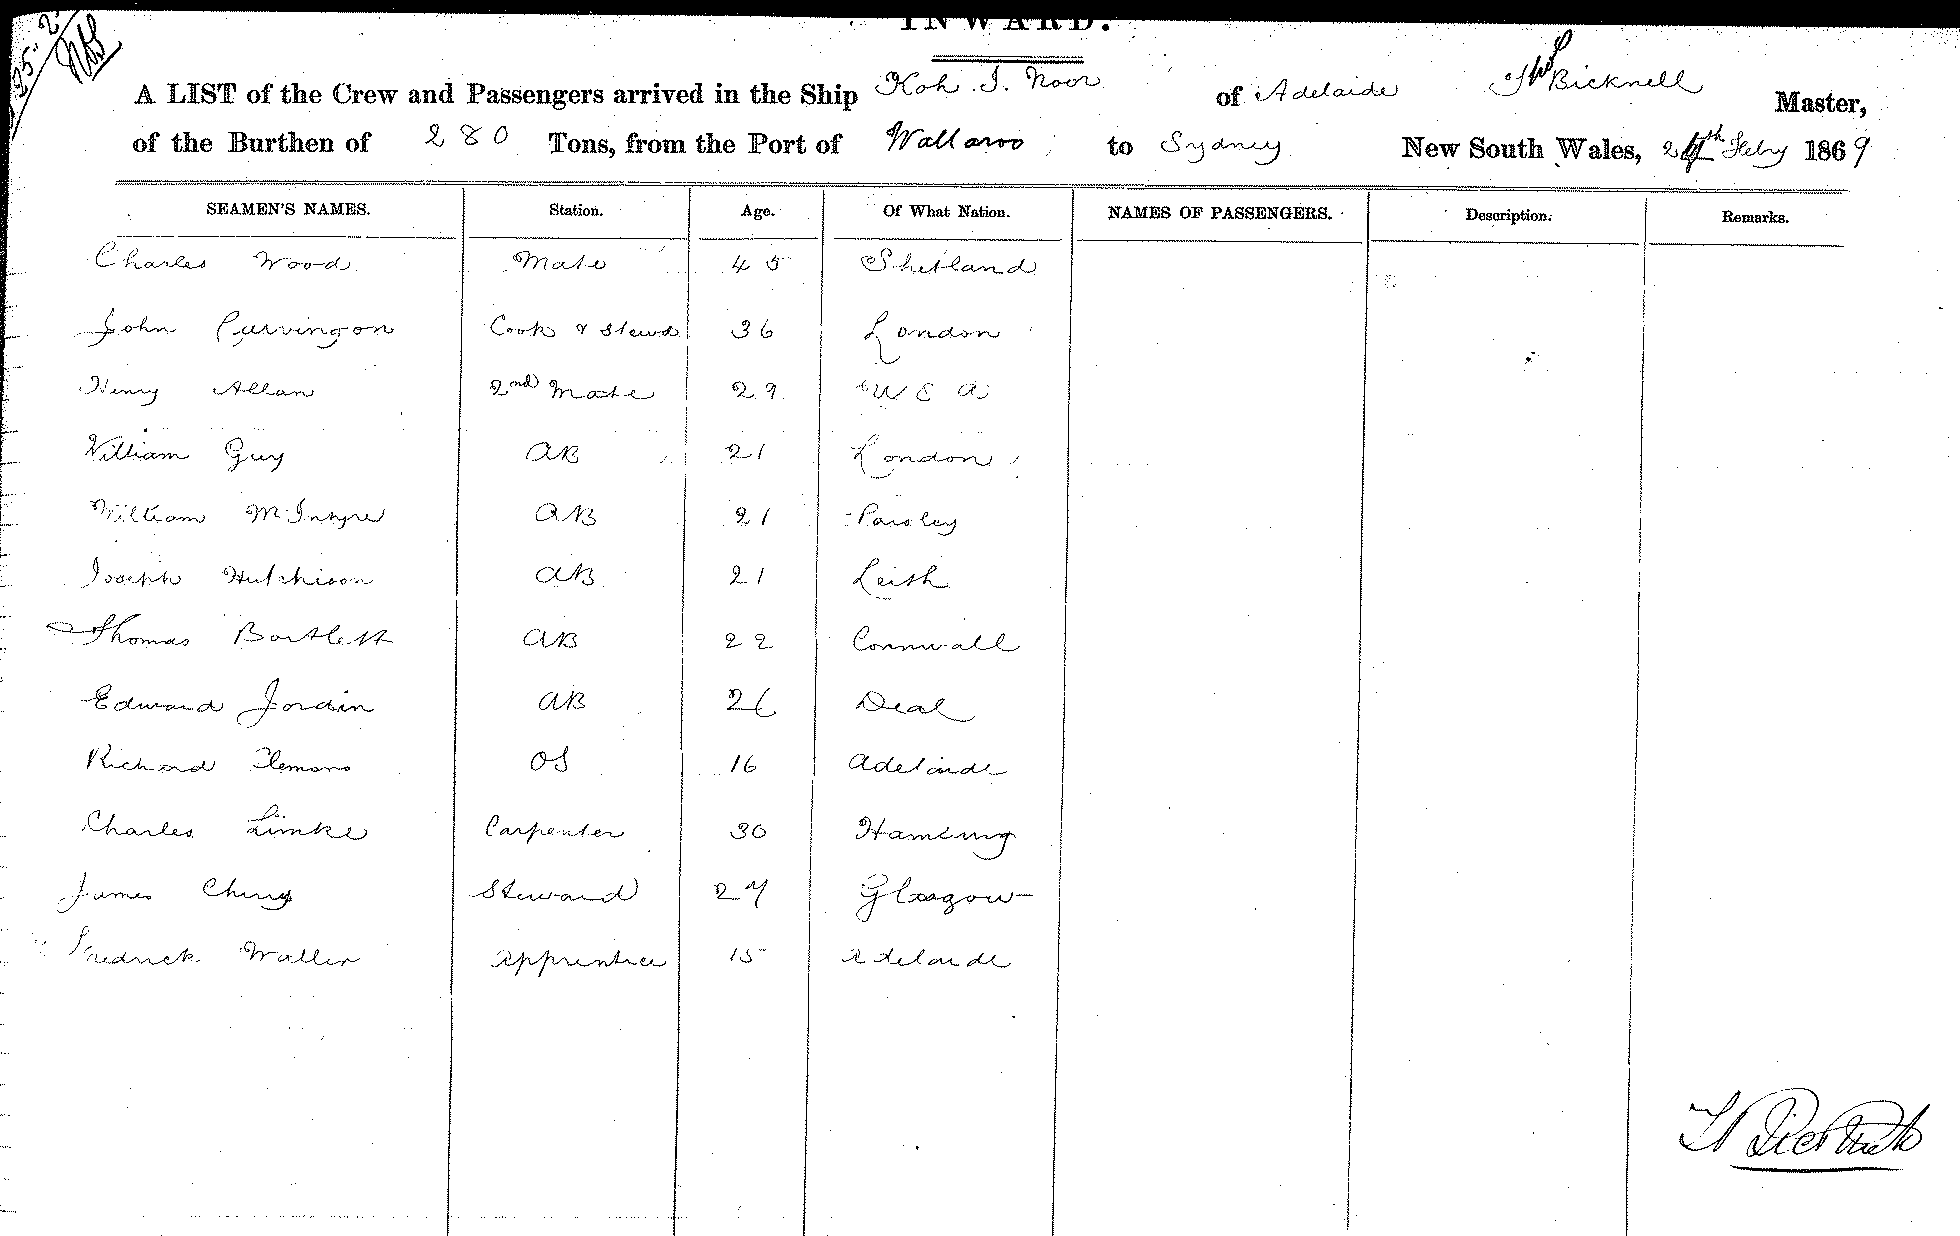 INWARD.
A LIST of the Crew and Passengers arrived in the Ship Koh. I. Noor of Adelaide Thos Bicknell Master,
of the Burthen of 280 Tons, from the Port of Wallaroo to Sydney New South Wales, 24th Feby 1869
SEAMEN'S NAMES. Station. Age. Of What Nation. NAMES OF PASSENGERS. Description. Remarks.
Charles Wood Mate 45 Shetland
John Curvingon Cook & Stewd 36 London
Henry Allan 2nd Mate 29
William Guy AB 21 London
William McIntyre AB 21 Paisley
Joseph Hutchison AB 21 Leith
Thomas Bartlett AB 22 Cornwall
Edward Jordin AB 26 Deal
Richard Clemons OS 16 Adelaide
Charles Limke Carpenter 30 Hamburg
James Ching Steward 27 Glasgow
Fredrick Waller Apprentice 15 Adelaide